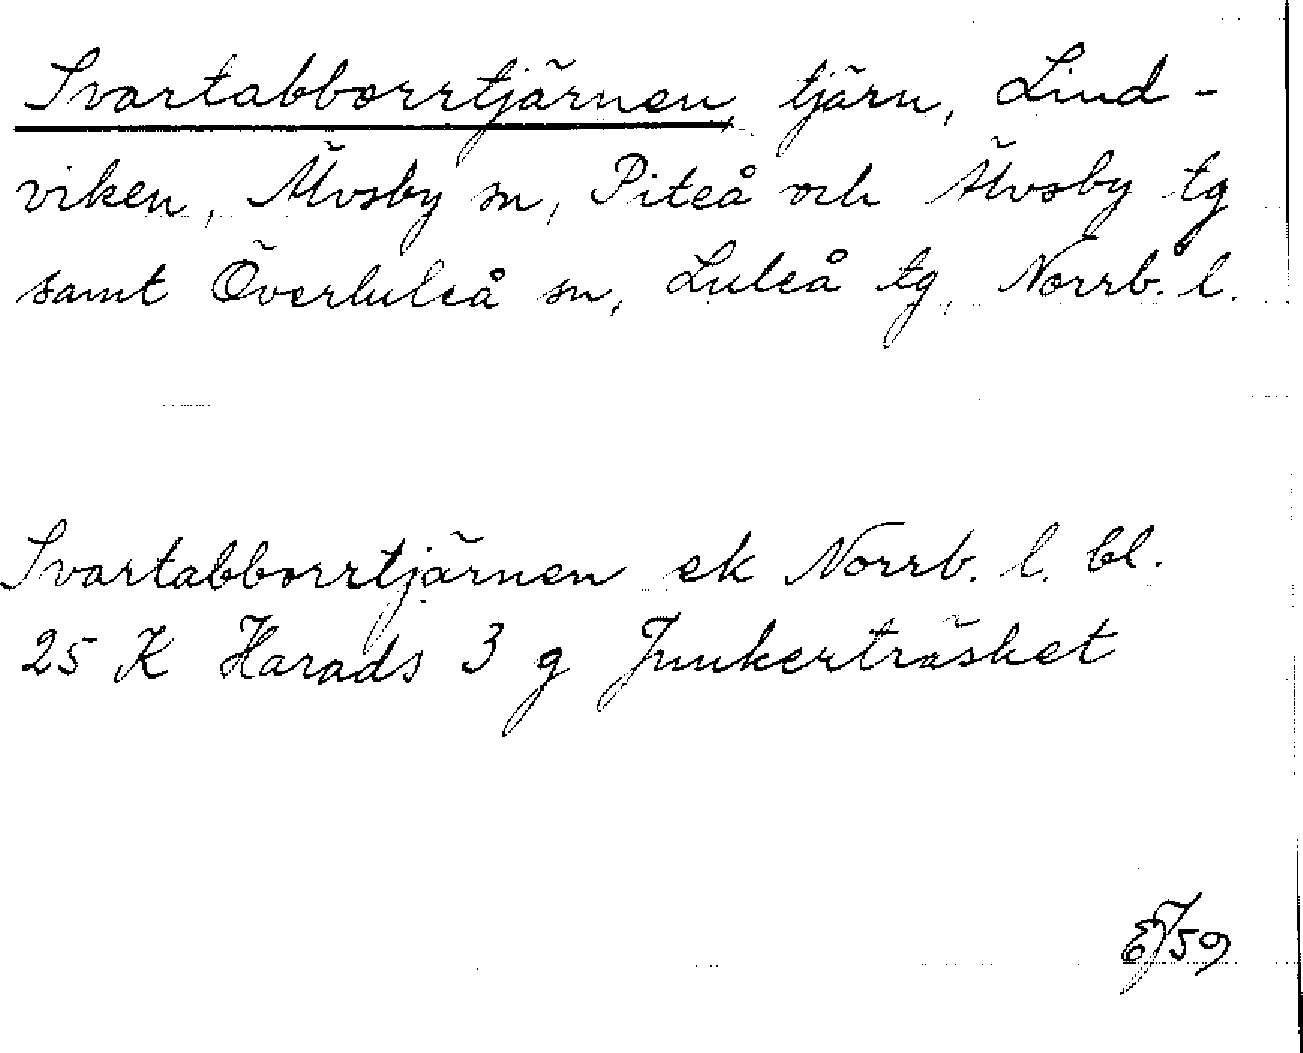 Svartabborrtjärnen, tjärn, Lind-
viken, Älvsby sn, Piteå och Älvsby tg
samt Överluleå sn, Luleå tg, Norrb. l.
Svartabborrtjärnen ek Norrb. l. bl.
25 K Harads 3 g Junkerträsket
EJ59